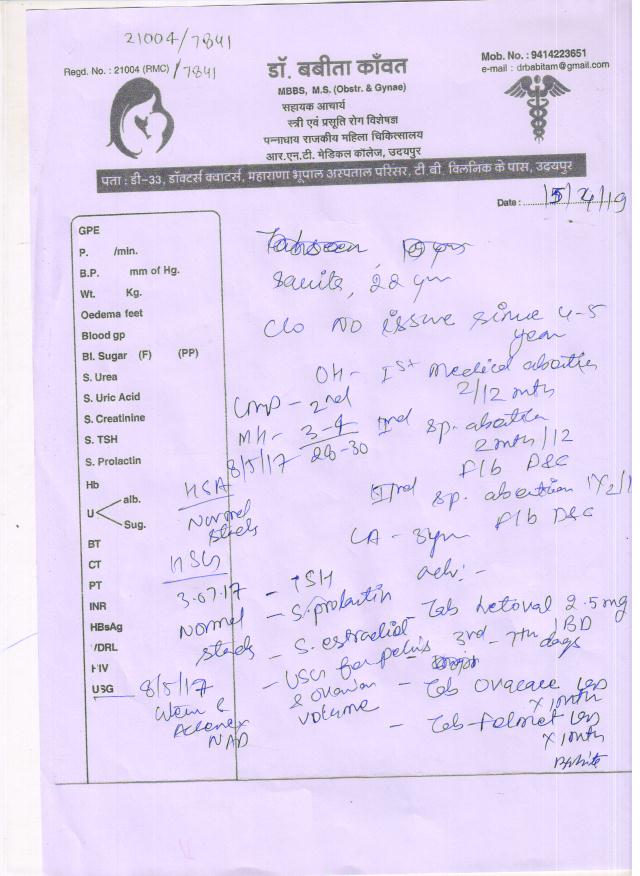 21004/7841
Regd. No. : 21004 (RMC) /7841
डॉ. बबीता काँवत
Mob. No. : 9414223651
e-mail : drbabitam@gmail.com
MBBS, M.S. (Obstr. & Gynae)
सहायक आचार्य
स्त्री एवं प्रसूति रोग विशेषज्ञ
पन्नाधाय राजकीय महिला चिकित्सालय
आर.एन.टी. मेडिकल कॉलेज, उदयपुर
पता : डी-33, डॉक्टर्स क्वाटर्स, महाराणा भूपाल अस्पताल परिसर, टी बी. क्लिनिक के पास, उदयपुर
Date : 15/4/19
GPE
P. /min.
B.P. mm of Hg.
Wt. Kg.
Oedema feet
Blood gp
Bl. Sugar (F) (PP)
S. Urea
S. Uric Acid
S. Creatinine
S. TSH
S. Prolactin
Hb
U alb.
Sug.
BT
CT
PT
INR
HBsAg
VDRL
HIV
USG 8/5/17
22 yr
C/o No issue since 4-5
year
OH - Ist Medical
2/12 mth
2nd
MH - 3-4
28-30
IInd sp. abortion
2 mth/12
F/b D&C
8/5/17
HSA
Normal
study
IIIrd sp. abortion
F/b D&C
LA - 3yr
HSG
3.07.17
Normal
study
adv: -
- TSH
- S. prolactin
- S. estradiol
- USG for pelvis
& ovarian
volume
- Tab Letoval 2.5 mg
BD
3rd - 7th days
- Tab Ovacare
x 1 month
- Tab Folmet
x 1 mth
NAD